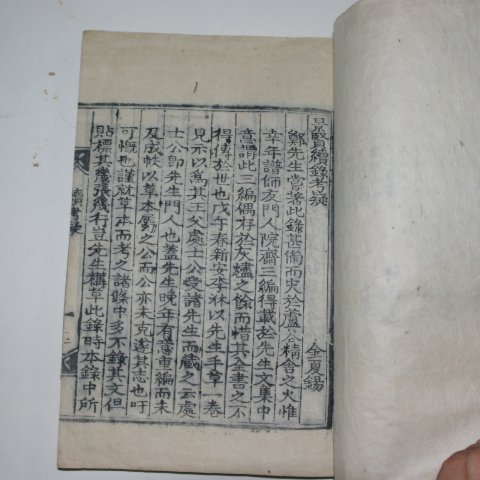 景賢續錄考疑
金夏錫
鄭先生嘗著此錄甚備而灾於蘆谷精舍之火惟
幸年譜師友門人院齋三編得載於先生文集中
意謂此三編偶存於灰燼之餘而惜其全書之不
得傳於世也戊午春新安李林以先生手草一卷
見示以為其王父處士公受諸先生而藏之云處
士公卽先生門人也蓋先生晩年有意重編而未
及成帙以草本屬之公而公亦未克遂其志也吁
可慨也謹就草本而考之諸條中多不錄其文但
貼標其幾張幾行豈先生搆草此錄時本錄中所
續考疑